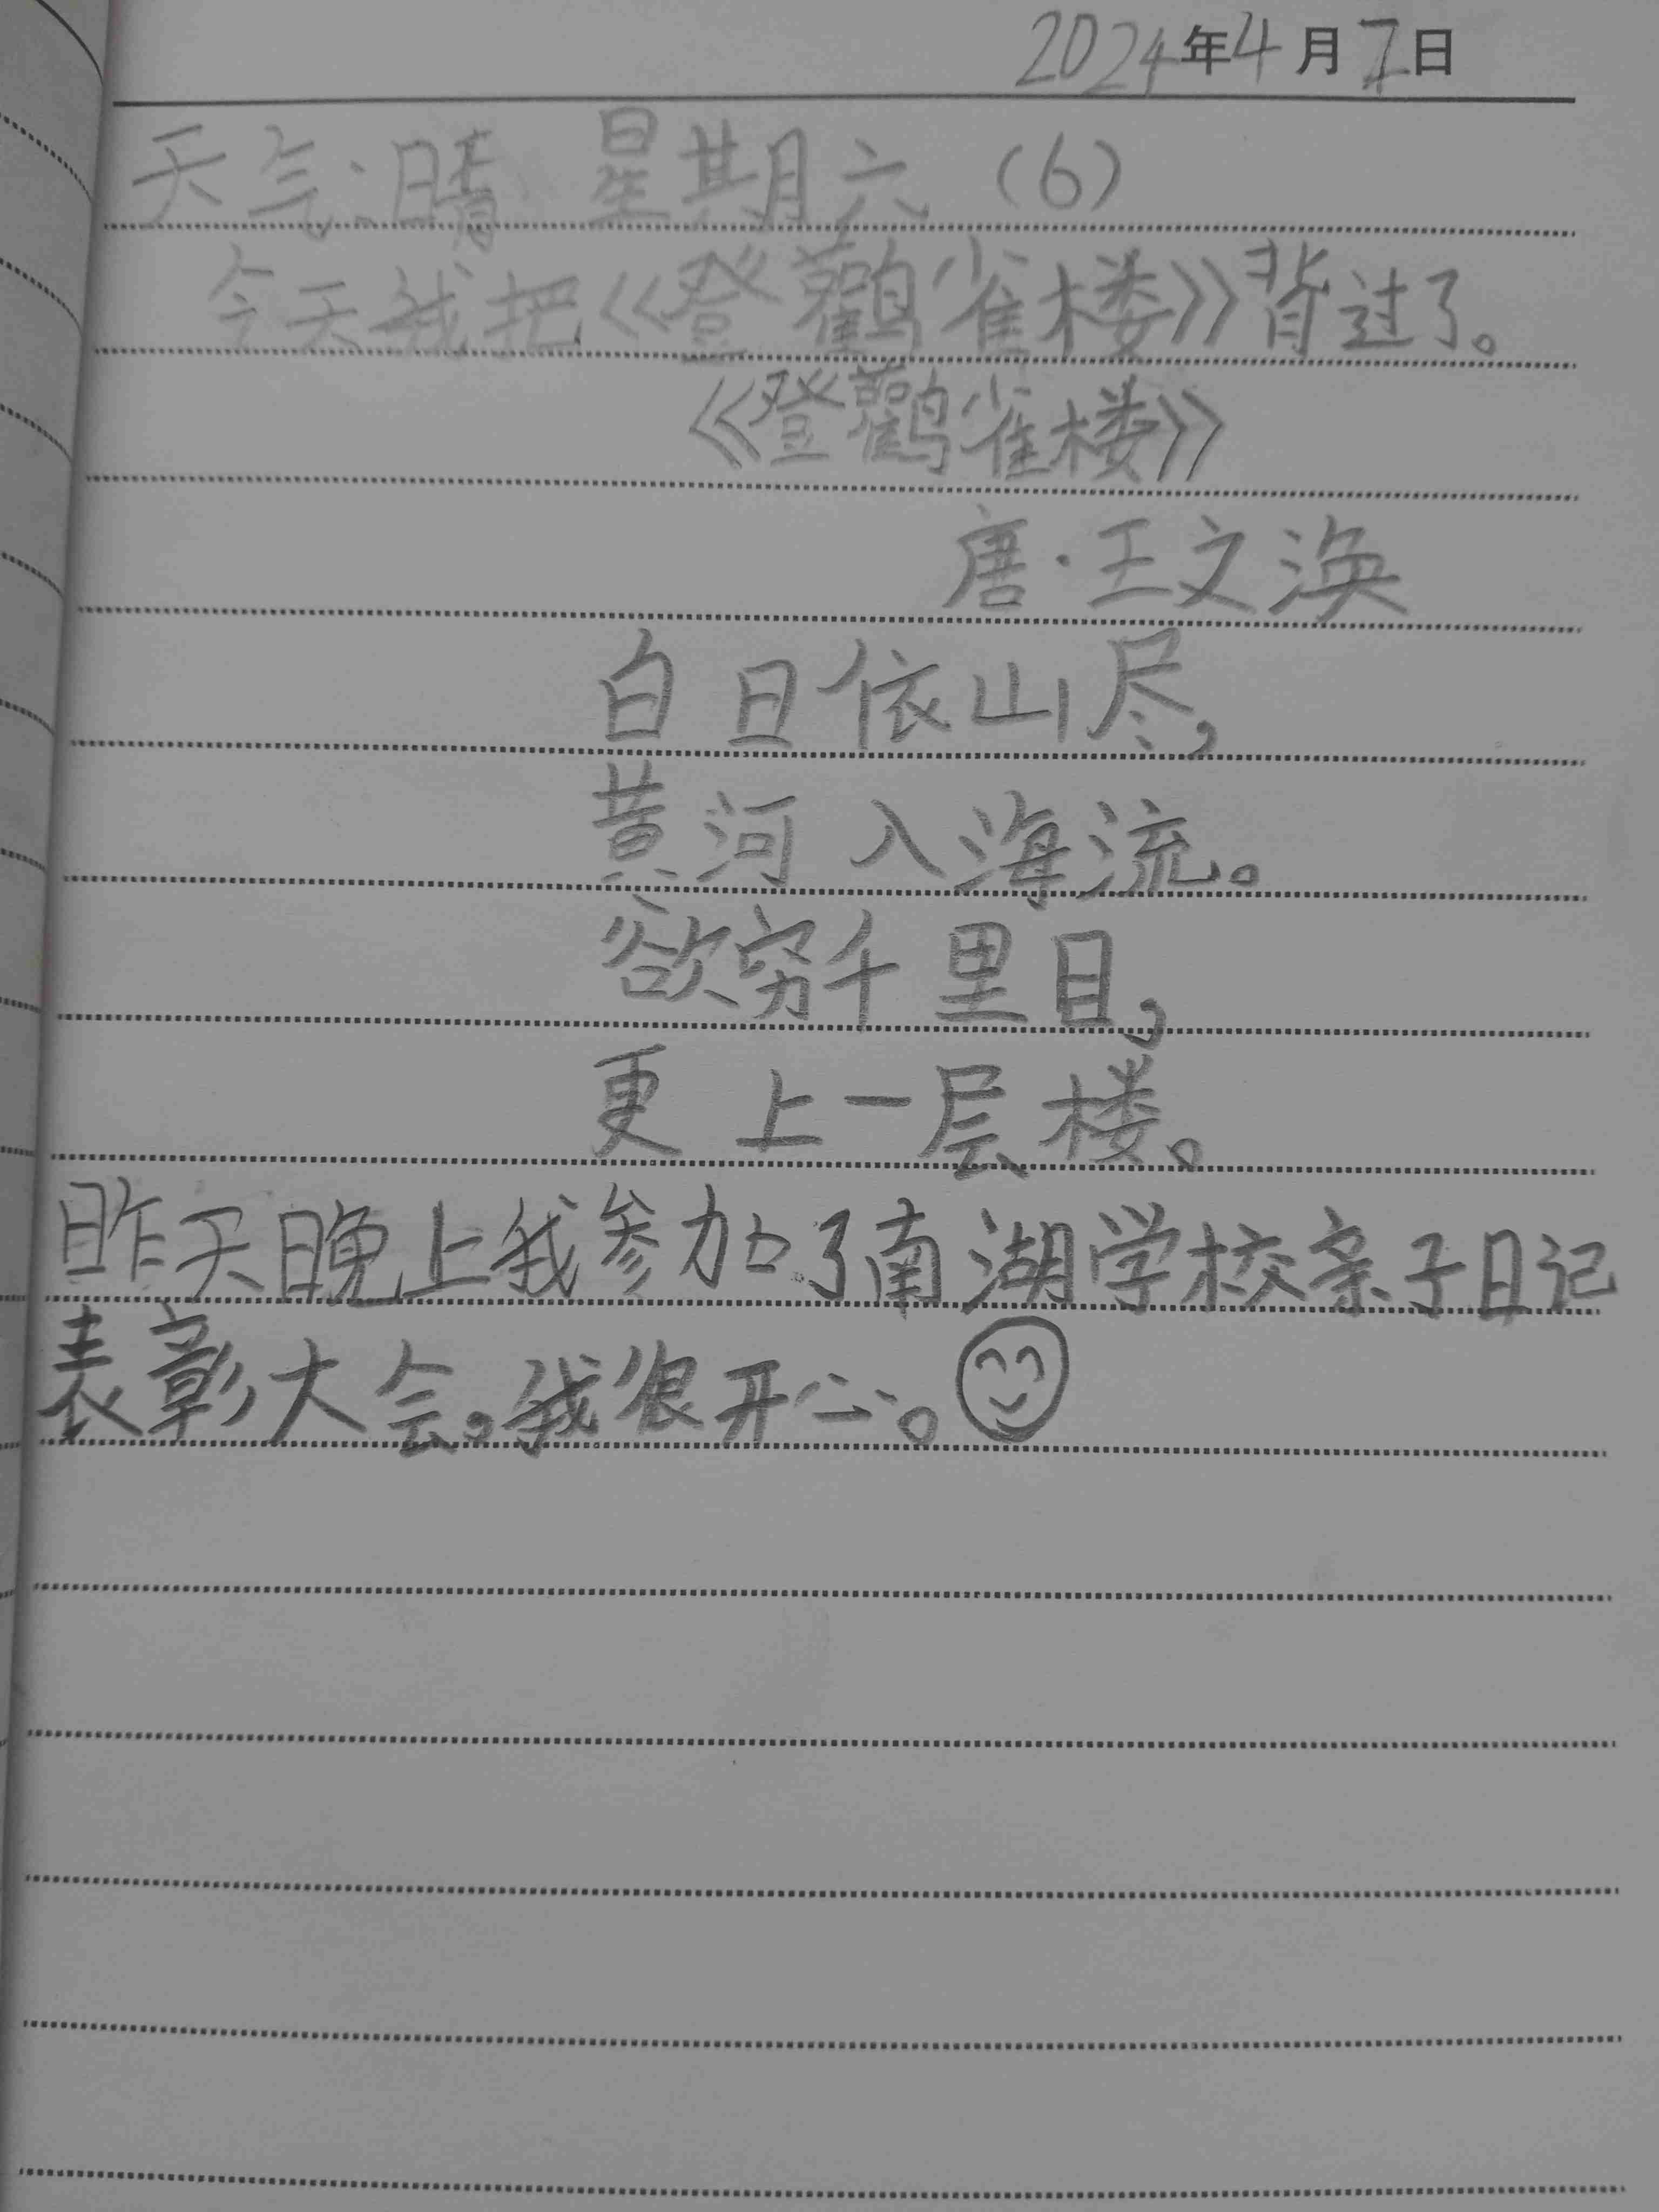 2024年4月7日
天气:晴 星期六 (6)
今天我把《登鹳雀楼》背过了。
《登鹳雀楼》
唐·王之涣
白日依山尽,
黄河入海流。
欲穷千里目,
更上一层楼。
昨天晚上我参加了南湖学校亲子日记
表彰大会。我很开心。